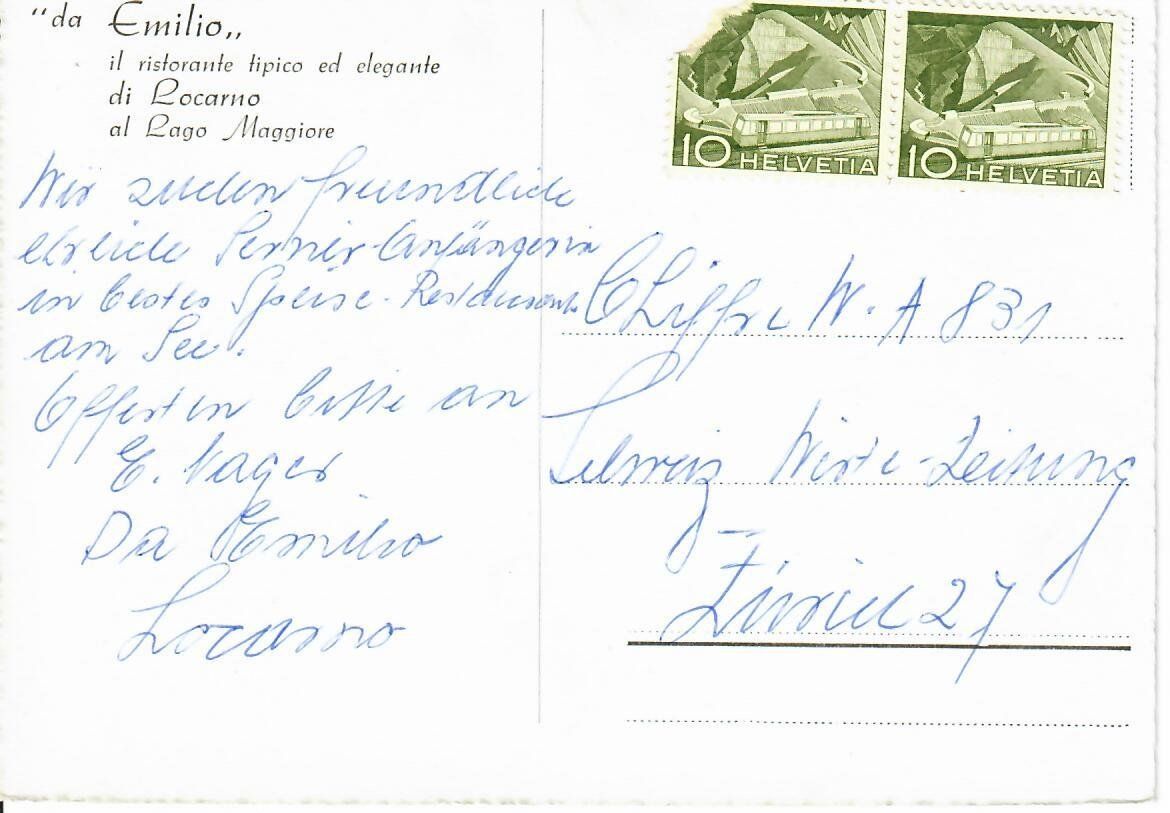 "da Emilio„
il ristorante tipico ed elegante
di Locarno
al Lago Maggiore
10 HELVETIA
10 HELVETIA
Wir suchen freundliche
ehrliche Servier-Anfängerin
in bestes Speise-Restaurant
am See.
Offerten bitte an
E. Nager
Da Emilio
Locarno
Chiffre W. A 831
Schweiz Wirte-Zeitung
Zürich 27